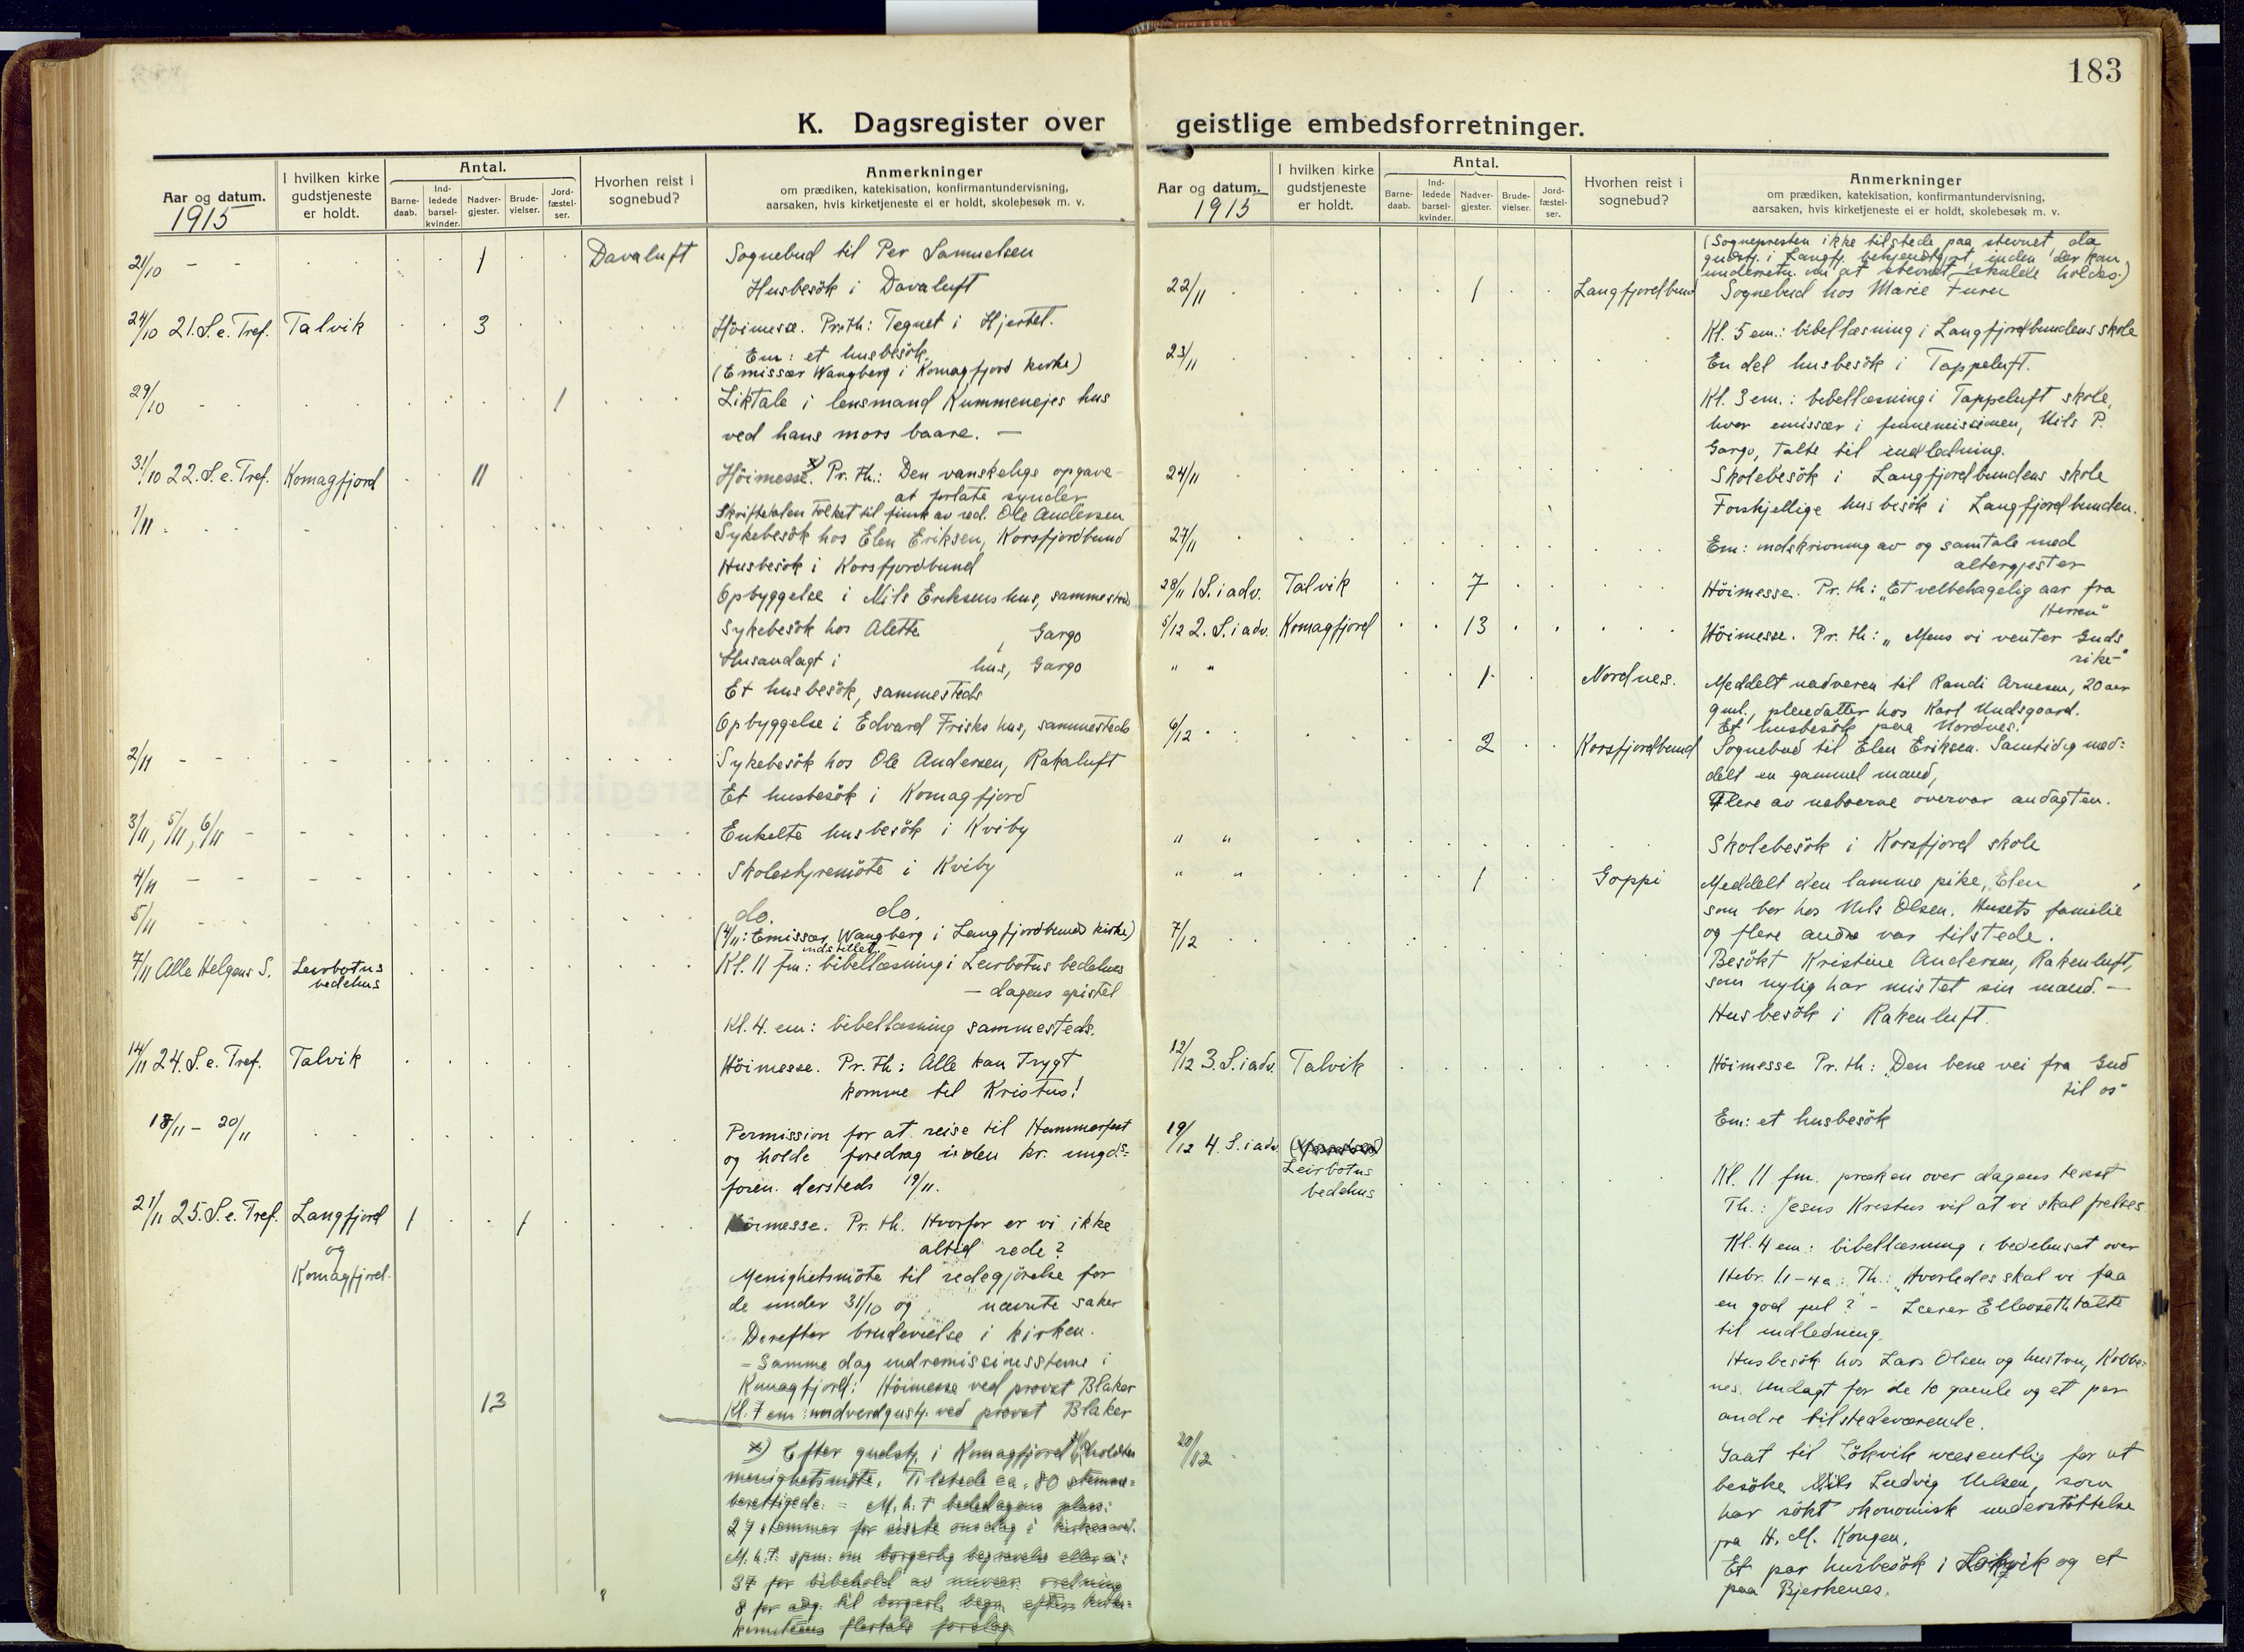 183
K. Dagsregister over geistlige embedsforretninger.
Aar og datum.
1915
I hvilken kirke gudstjeneste er holdt.
Antal.
Barne-daab.
Ind-ledede barsel-kvinder.
Nadver-gjester.
Brude-vielser.
Jord-fæstel-ser.
Hvorhen reist i sognebud?
Anmerkninger
om prædiken, katekisation, konfirmantundervisning,
aarsaken, hvis kirketjeneste ei er holdt, skolebesøk m. v.
21/10 1 Davaluft Sognebud til Per Samuelsen
Husbesök i Davaluft
24/10 21. S. e. Tref. Talvik 3 Höimesse. Pr. Th: Tegnet i Hjertet.
Em: et husbesök.
(Emissær Wangberg i Komagfjord kirke)
29/10 1 Liktale i lensmand Kummenejes hus
ved hans mors baare. —
31/10 22. S. e. Tref. Komagfjord 11 Höimesse x). Pr. Th.: Den vanskelige opgave
at forlate synder
Skriftetalen tolket til finsk av red. Ole Andersen
1/11 Sykebesök hos Elen Eriksen, Korsfjordbund
Husbesök i Korsfjordbund
Opbyggelse i Nils Eriksens hus, sammesteds
Sykebesök hos Alette , Gargo
Husandagt i hus, Gargo
Et husbesök, sammesteds
Opbyggelse i Edvard Frisks hus, sammesteds
2/11 Sykebesök hos Ole Andersen, Rakaluft
Et husbesök i Komagfjord
3/11, 5/11, 6/11 Enkelte husbesök i Kviby
4/11 Skolestyremöte i Kviby
5/11 do. do.
(4/11: Emissær Wangberg i Langfjordbunds kirke)
indstillet
7/11 Alle Helgens S. Leirbotns bedehus Kl. 11 fm: bibellæsning i Leirbotns bedehus
— dagens epistel
Kl. 4. em: bibellæsning sammesteds.
14/11 24. S. e. Tref. Talvik Höimesse. Pr. Th: Alle kan trygt
komme til Kristus!
18/11 – 20/11 Permission for at reise til Hammerfest
og holde foredrag i den kr. ungd.s=
foren. dersteds 19/11.
21/11 25. S. e. Tref. Langfjord 1 1 Höimesse. Pr. th. Hvorfor er vi ikke
og altid rede?
Komagfjord. Menighetsmöte til redegjörelse for
de under 31/10 og nævnte saker
Derefter brudevielse i kirken.
– Samme dag indremissionsstevne i
Komagfjord: Höimesse ved provst Blaker
13 Kl. 7 em: nadverdgustj. ved provst Blaker
x) Efter gudstj. i Komagfjord 31/10 holdtes
menighetsmöte. Tilstede ca. 80 stemme=
berettigede. = M. h. t. bededagens plass:
27 stemmer for siste onsdag i
M. h. t. spm. om borgerlig begravelse eller ei:
37 for bibehold av nuvær. ordning
8 for adg. til borgerl. begr. efter kirke=
komiteens flertals forslag
Aar og datum.
1915
I hvilken kirke gudstjeneste er holdt.
Antal.
Barne-daab.
Ind-ledede barsel-kvinder.
Nadver-gjester.
Brude-vielser.
Jord-fæstel-ser.
Hvorhen reist i sognebud?
Anmerkninger
om prædiken, katekisation, konfirmantundervisning,
aarsaken, hvis kirketjeneste ei er holdt, skolebesøk m. v.
(Sognepresten ikke tilstede paa stevnet, da
gudstj. i Langfj. bekjendtgjort, inden der kom
underretn. om at stevnet skulde holdes.)
22/11 1 Langfjordbund Sognebud hos Marie Furu
Kl. 5 em.: bibellæsning i Langfjordbundens skole
23/11 En del husbesök i Tappeluft.
Kl. 3 em.: bibellæsning i Tappeluft skole,
hvor emissær i finnemissionen, Nils P.
Gargo, talte til indledning.
24/11 Skolebesök i Langfjordbundens skole
Forskjellige husbesök i Langfjordbunden.
27/11 Em: indskrivning av og samtale med
altergjester
28/11 1 S. i adv. Talvik 7 Höimesse. Pr. th: „Et velbehagelig aar fra
Herren"
5/12 2. S. i adv. Komagfjord 13 Höimesse. Pr. th: „Mens vi venter Guds
rike–"
" " 1 Nordnes. Meddelt nadveren til Randi Arnesen, 20 aar
gml., pleiedatter hos Karl Undsgaard.
Et husbesök paa Nordnes.
6/12 2 Korsfjordbund Sognebud til Elen Eriksen. Samtidig med=
delt en gammel mand,
Flere av naboerne overvar andagten.
" " Skolebesök i Korsfjord skole
" " 1 Goppi Meddelt den lamme pike, Elen ,
som bor hos Nils Olsen. Husets familie
og flere andre var tilstede.
7/12 Besökt Kristine Andersen, Rakenluft,
som nylig har mistet sin mand. —
Husbesök i Rakenluft.
12/12 3. S. i adv. Talvik Höimesse Pr. th: „Den bene vei fra Gud
til os"
Em: et husbesök
19/12 4. S. i adv. Leirbotns bedehus Kl. 11 fm. præken over dagens tekst
Th.: Jesus Kristus vil at vi skal frelses.
Kl. 4 em: bibellæsning i bedehuset over
Hebr. 1.1–4a: Th.: „Hvorledes skal vi faa
en god jul?" – Lærer Elleseth talte
til indledning.
Husbesök hos Lars Olsen og hustru, Kobbe=
nes. Andagt for de to gamle og et par
andre tilstedeværende.
20/12 Gaat til Lökvik væsentlig for at
besöke Nils Ludvig Nilsen, som
har sökt ökonomisk understöttelse
fra H. M. Kongen.
Et par husbesök i Lökvik og et
paa Bjerkenes.